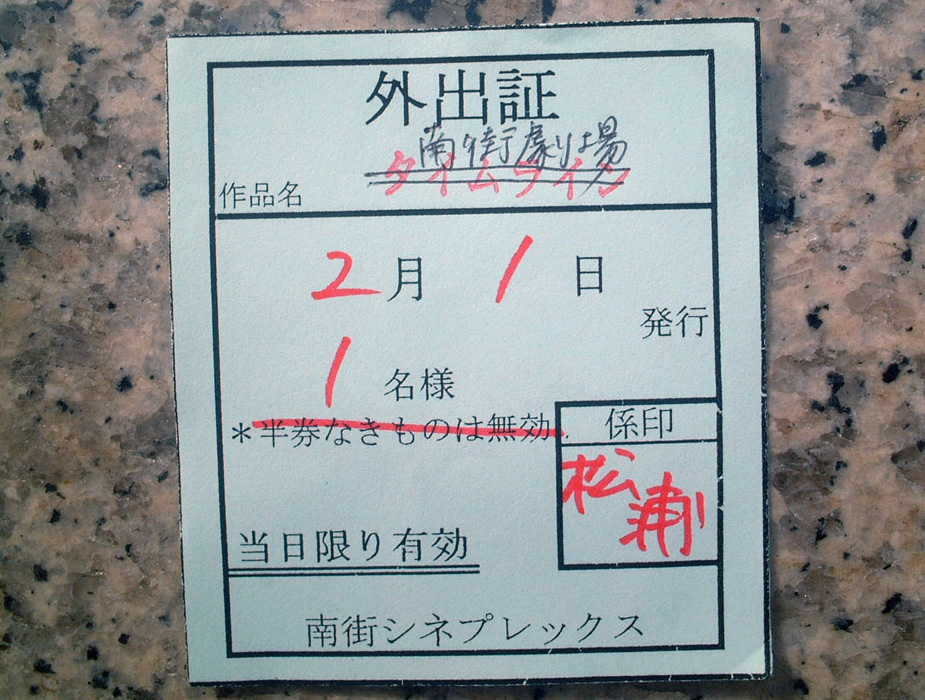 外出証
南街劇場
作品名 タイムライン
2月1日
発行
1名様
*半券なきものは無効.
係印
松浦
当日限り有効
南街シネプレックス